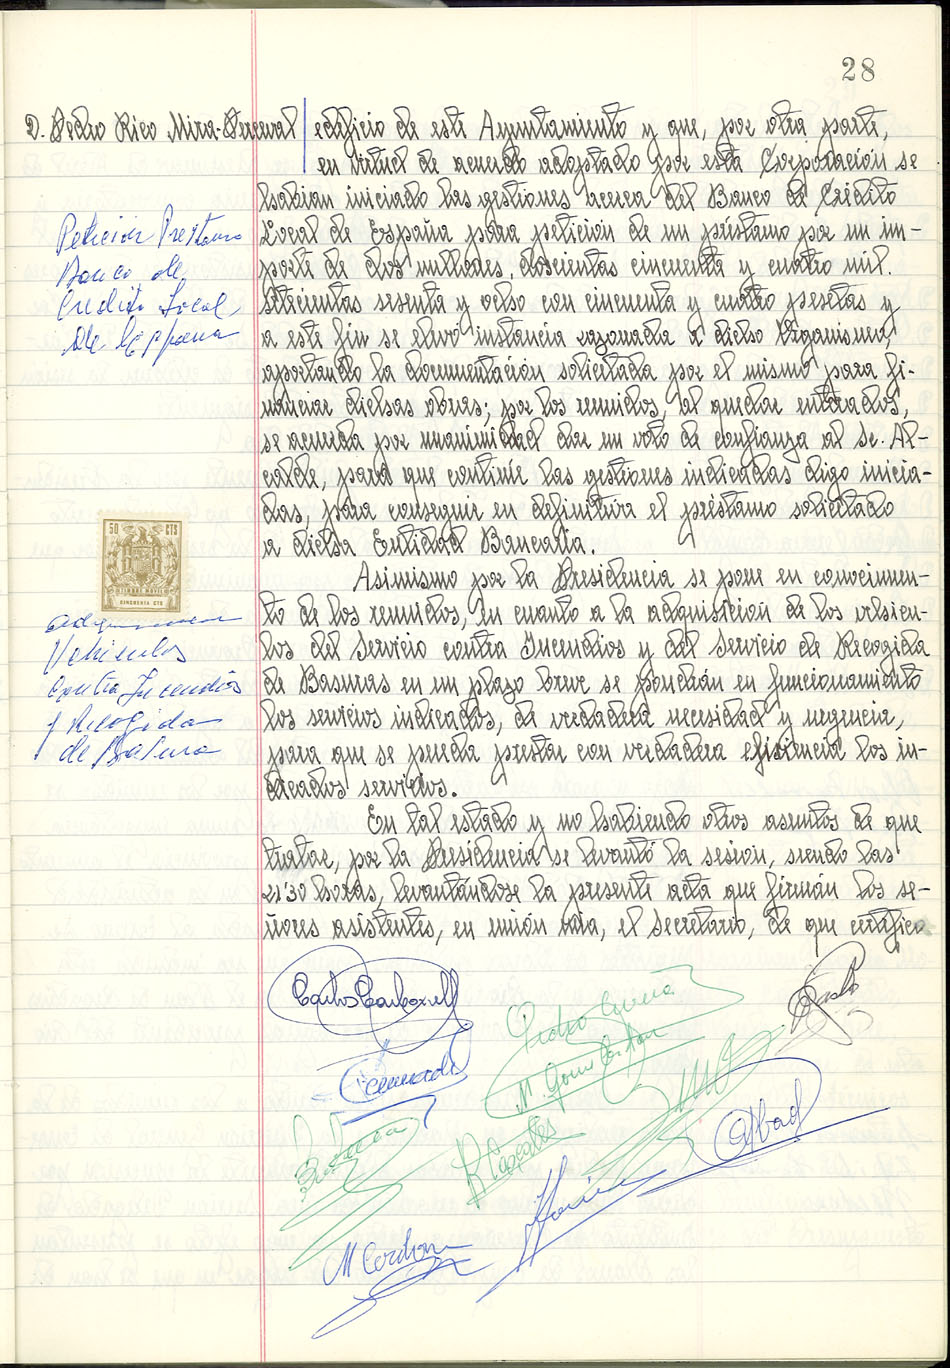 28
D. Pedro Rico Mira-Perceval edificio de este Ayuntamiento y que, por otra parte,
en virtud de acuerdo adoptado por esta Corporación se
habian iniciado las gestiones acerca del Banco de Crédito
Local de España para peticion de un préstamo por un im-
porte de dos millones, doscientas cincuenta y cuatro mil.
setecientas sesenta y ocho con cincuenta y cuatro pesetas y
a este fin se elevó instancia razonada a dicho Organismo,
aportando la documentación solicitada por el mismo para fi-
nanciar dichas obras; por los reunidos, al quedar enterados,
se acuerda por unanimidad dar un voto de confianza al Sr. Al-
calde, para que continúe las gestiones indicadas digo inicia-
das, para conseguir en definitiva el préstamo solicitado
a dicha Entidad Bancaria.
Peticion Prestamo
Banco de
Credito Local
de España
50 CTS
TIMBRE MOVIL
CINCUENTA CTS
Asimismo por la Presidencia se pone en conocimien-
to de los reunidos, en cuanto a la adquisición de los vehicu-
los del Servicio contra Incendios y del Servicio de Recogida
de Basuras en un plazo breve se pondrán en funcionamiento
los servicios indicados, de verdadera necesidad y urgencia,
para que se pueda prestar con verdadera eficiencia los in-
dicados servicios.
Adquisicion
Vehiculos
contra Incendios
y Recogida
de Basura
En tal estado y no habiendo otros asuntos de que
tratar, por la Presidencia se levantó la sesión, siendo las
21'30 horas, levantándose la presente acta que firmán los se-
ñores asistentes, en unión mia, el Secretario, de que certifico
Carlos Carbonell
Pedro
M. Gomez
Abad
M Cerdan